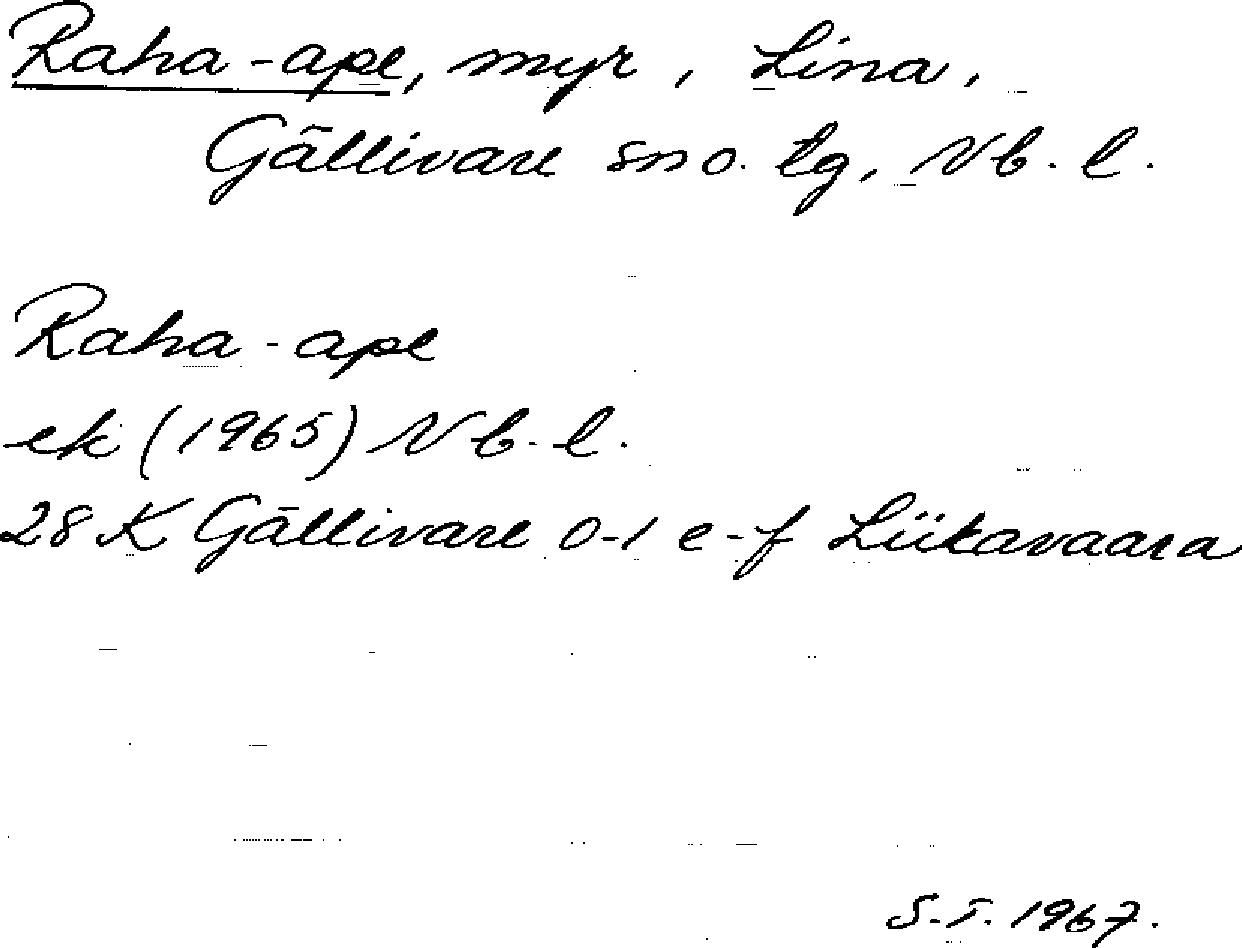 Raha-ape, myr, Lina,
Gällivare sn o. tg, Nb. l.
Raha-ape
ek (1965) Nb. l.
28 K Gällivare 0-1 e-f Liikavaara
S.T. 1967.